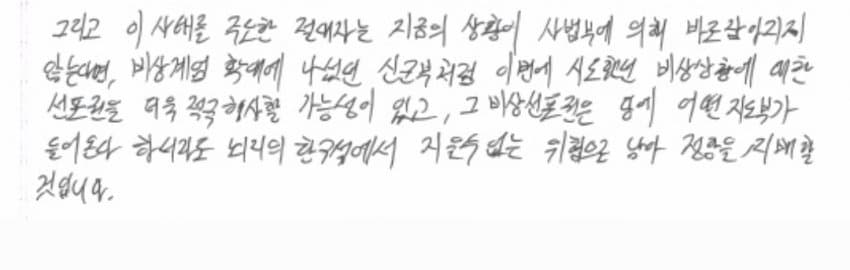 그리고 이 사태를 주도한 절대자는 지금의 상황이 사법부에 의해 바로잡아지지
않는다면, 비상계엄 확대에 나섰던 신군부처럼 이번에 시도했던 비상상황에 대한
선포권을 더욱 적극 행사할 가능성이 있고, 그 비상선포권은 당에 어떤 지도부가
들어온다 하더라도 뇌리의 한구석에서 지울수 없는 위협으로 남아 정당을 지배할
것입니다.